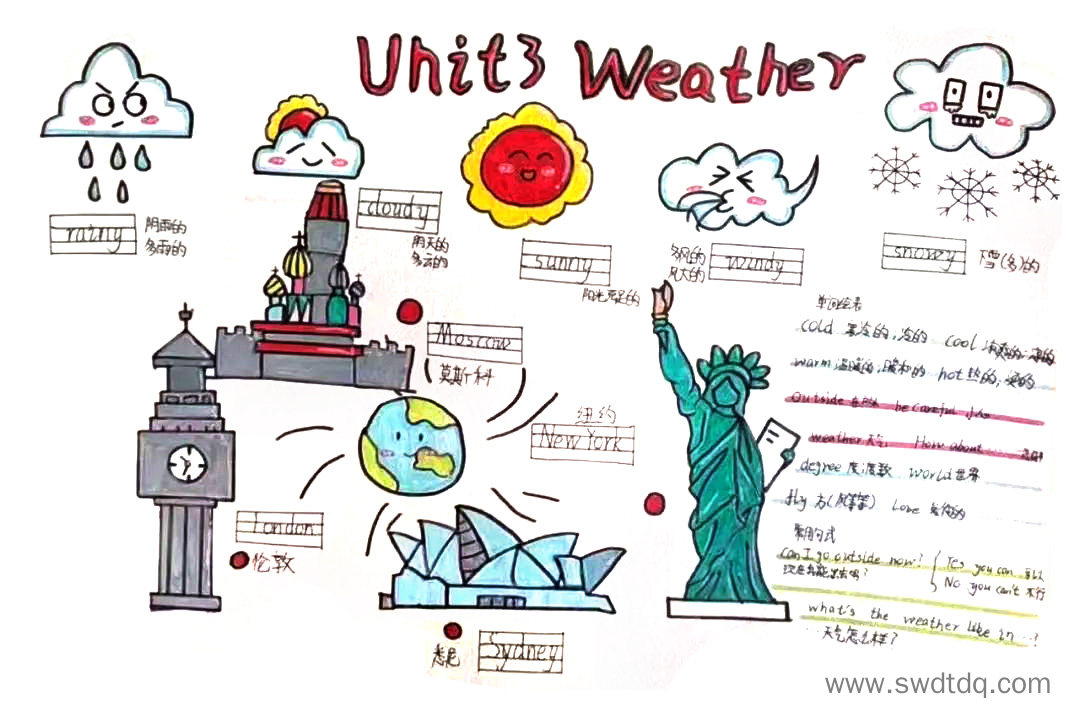 Unit3 Weather
rainy
阴雨的
多雨的
cloudy
阴天的
多云的
sunny
阳光充足的
多风的
风大的
windy
snowy
下雪(多)的
Moscow
莫斯科
纽约
New York
London
伦敦
悉尼
Sydney
单词
cold 寒冷的,冷的 cool
warm 温暖的,暖和的 hot 热的;
outside be careful
weather 天气 How about
degree 度;度数 world 世界
fly love
常用句式
can I go outside now? Yes you can 可以
现在我能出去吗? No you can't 不行
what's the weather like in ...?
...天气怎么样?
www.swdtdq.com